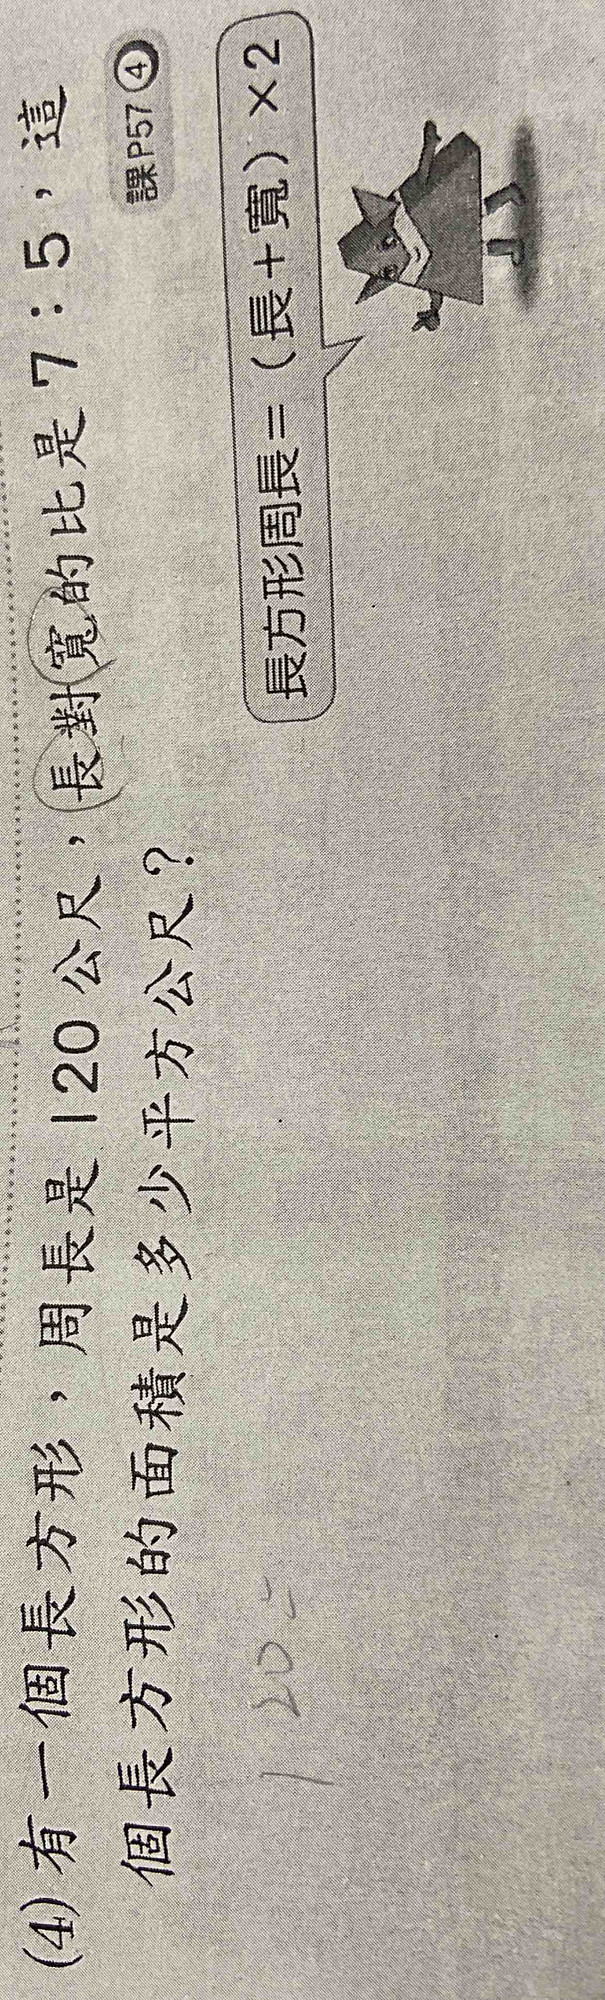 (4) 有一個長方形，周長是120公尺，長對寬的比是7：5，這
個長方形的面積是多少平方公尺？
課P57④
長方形周長＝（長＋寬）×2
120